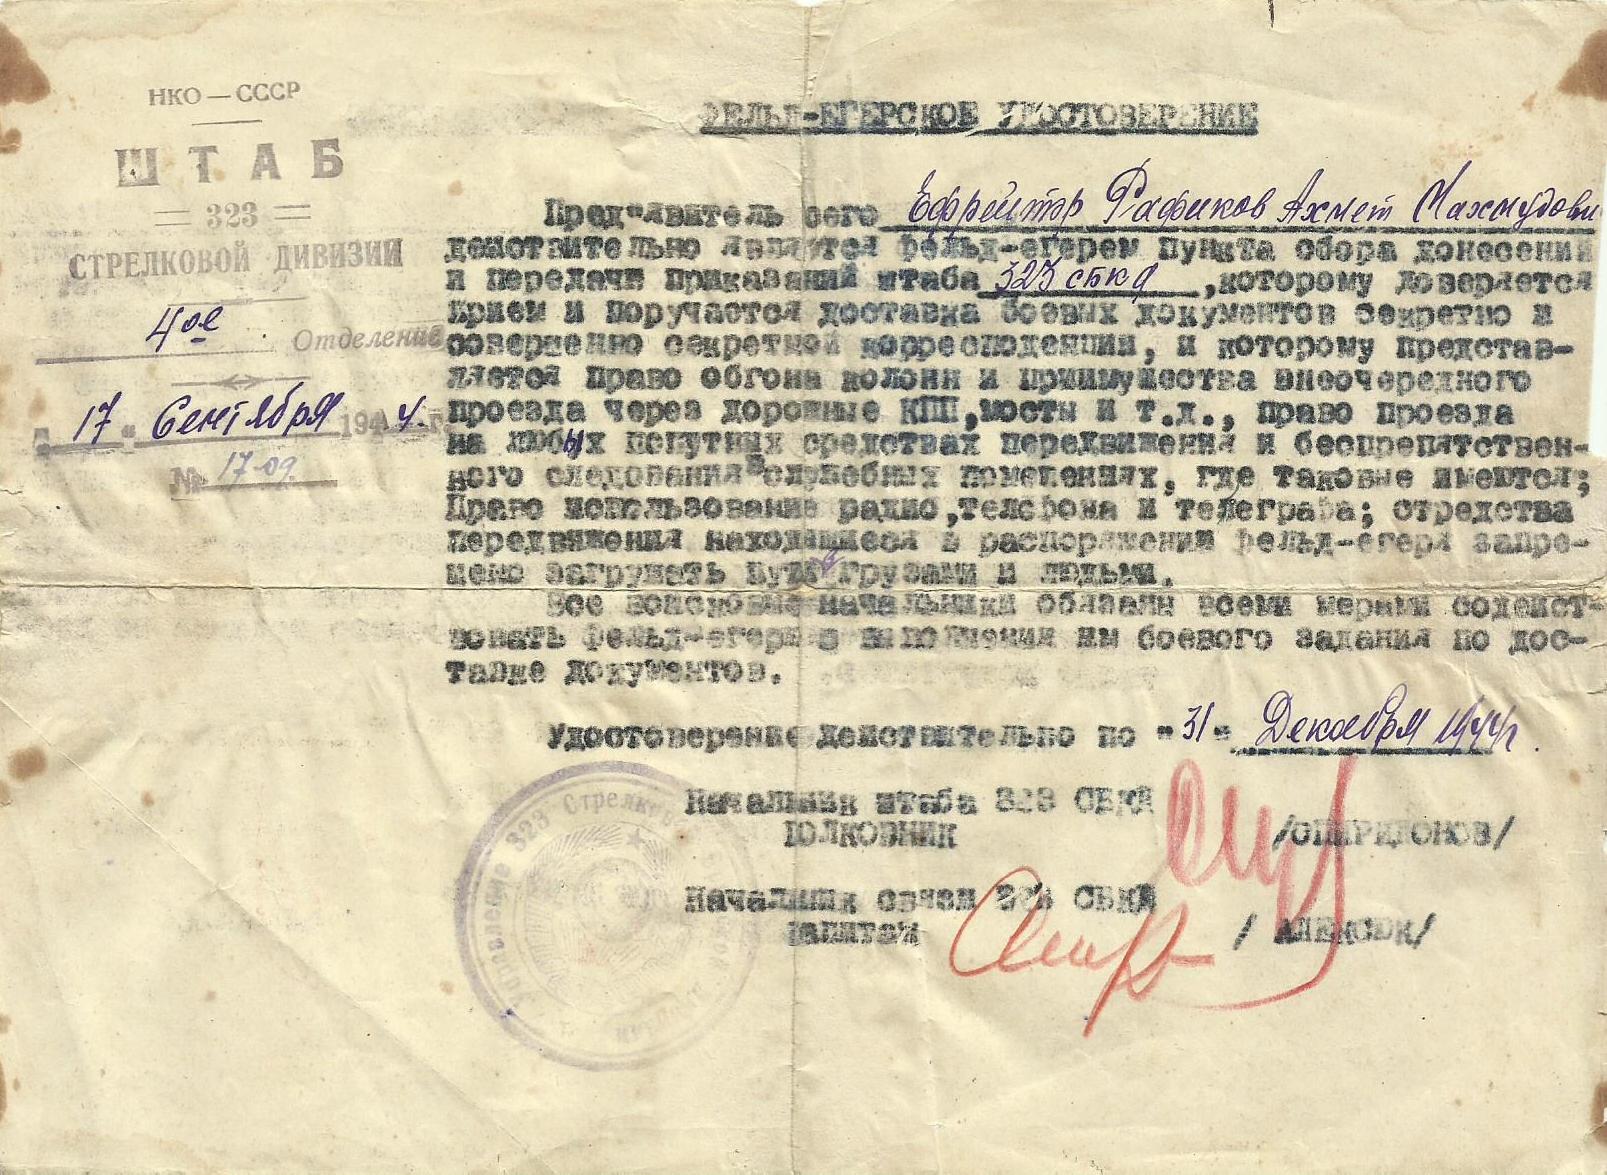 НКО — СССР
ШТАБ
323
СТРЕЛКОВОЙ ДИВИЗИИ
4ое Отделение
"17" Сентября 1944 г.
№ 17-09.
ФЕЛЬД-ЕГЕРСКОЕ УДОСТОВЕРЕНИЕ
Пред"явитель сего Ефрейтор Рафиков Ахмет Махмудови
действительно является фельд-егерем Пункта сбора донесений
и передачи приказаний штаба 323 сбкд, которому доверяется
Прием и поручается доставка боевых документов секретно и
совершенно секретной корресподенции, и которому представ-
ляется право обгона колонн и приимущества внеочередного
проезда через дорожные КПП, мосты и т.д., право проезда
на любых попутных средствах передвижения и беспрепятствен-
ного следования в служебных помещениях, где таковые имеются;
Право использование радио, телефона и телеграфа; стредства
передвижения находящиеся в распоряжении фельд-егеря запре-
щено загружать грузами и людьми.
Все войсковые начальники обязаны всеми мерами содейст-
вовать фельд-егерю в выполнении им боевого задания по дос-
тавке документов.
Удостоверение действительно по "31" Декабря 1944г.
Начальник штаба 323 СБКД
Полковник /СПИРИДОНОВ/
Начальник связи 323 СБКД
Капитан / АЛЕКСЮК/
Управление 323 Стрелковой Дивизии